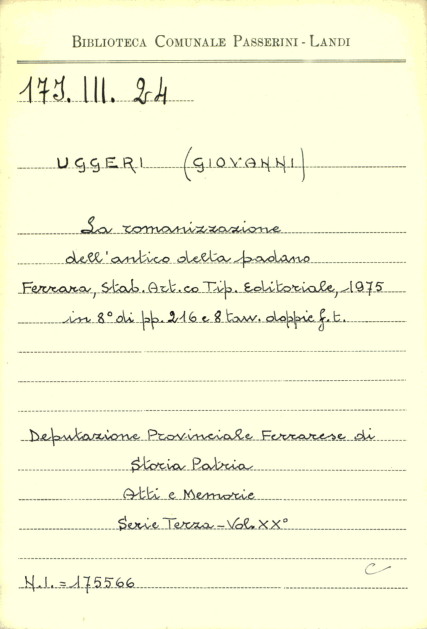 BIBLIOTECA COMUNALE PASSERINI - LANDI
17J. III. 24
UGGERI (GIOVANNI)
La romanizzazione
dell'antico delta padano
Ferrara, Stab. Art.co Tip. Editoriale, 1975
in 8° di pp. 216 e 8 tav. doppie f. t.
Deputazione Provinciale Ferrarese di
Storia Patria
Atti e Memorie
Serie Terza - Vol. XX°
C
N.I. = 175566